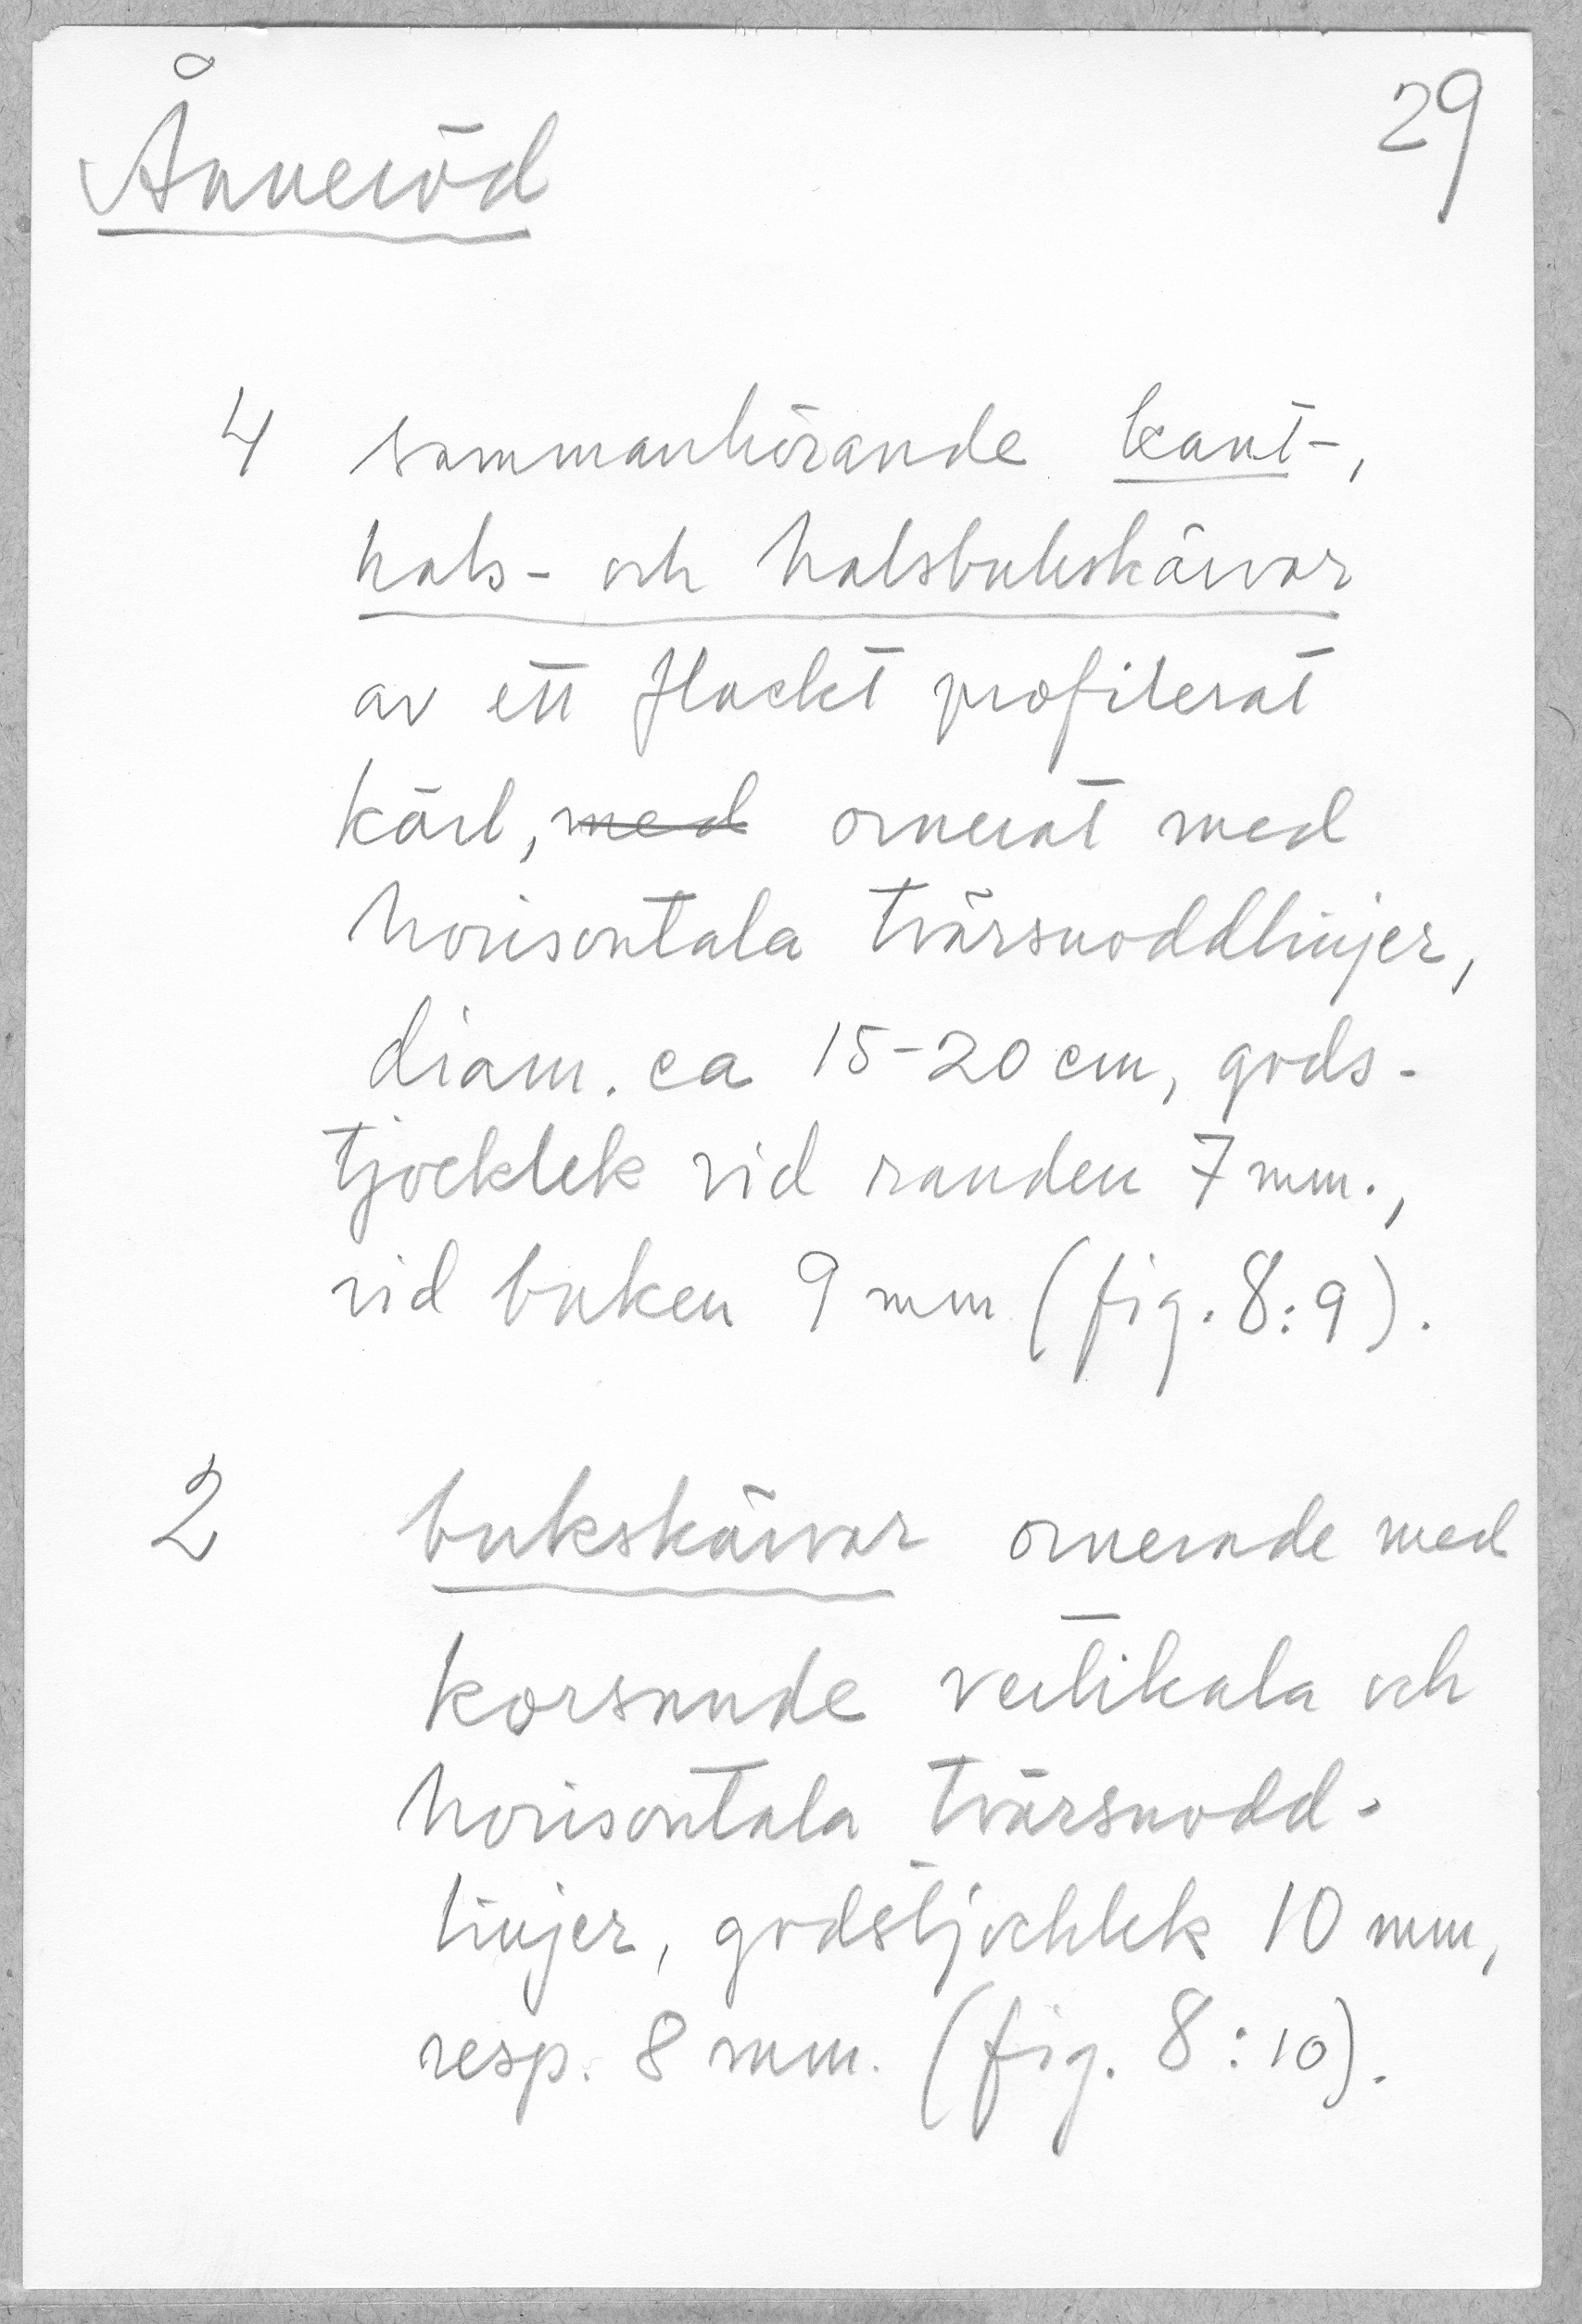 29
Ånneröd
4 sammanhörande kant-,
hals- och halsbukskärvor
av ett flackt profilerat
kärl, med ornerat med
horisontala tvärsnoddlinjer,
diam. ca 15-20 cm, gods-
tjocklek vid randen 7 mm.,
vid buken 9 mm (fig. 8:9).
2 bukskärvor ornerade med
korsande vertikala och
horisontala tvärsnodd-
linjer, godstjocklek 10 mm,
resp. 8 mm. (fig. 8:10).